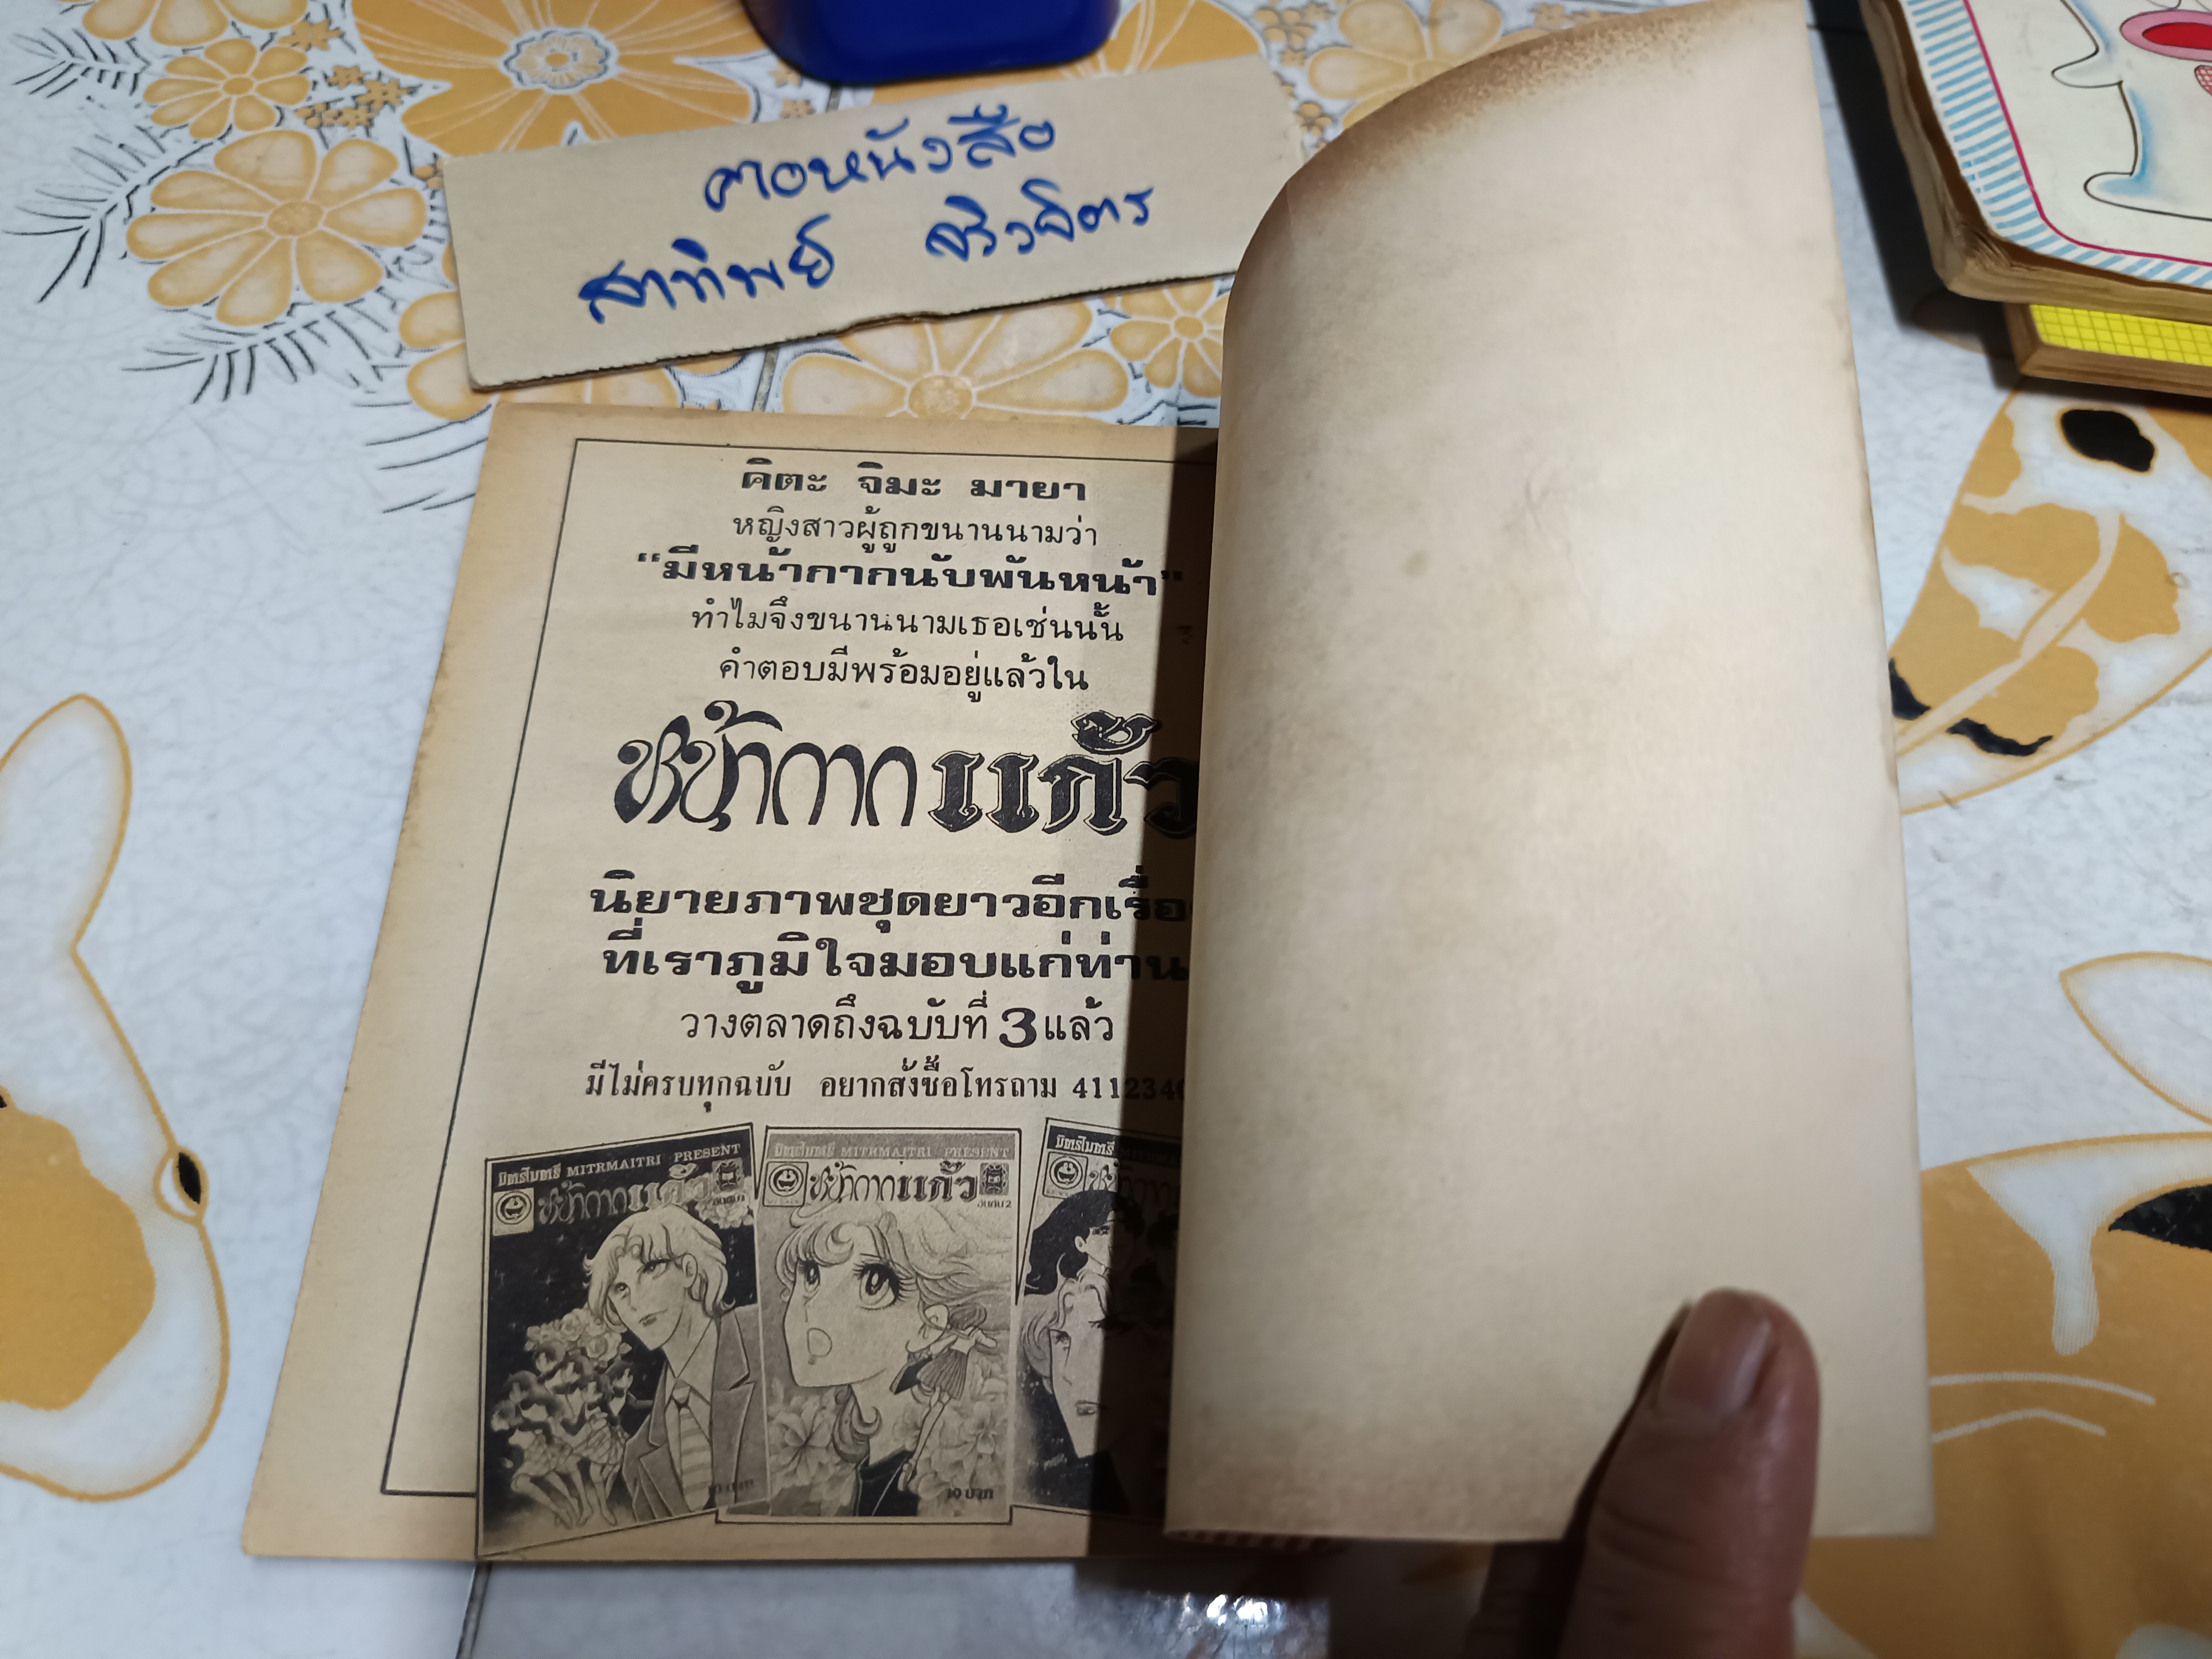 คอหนังสือ
สาทิพย์ จริวจิตร
คิตะ จิมะ มายา
หญิงสาวผู้ถูกขนานนามว่า
"มีหน้ากากนับพันหน้า"
ทำไมจึงขนานนามเธอเช่นนั้น
คำตอบมีพร้อมอยู่แล้วใน
หน้ากากแก้ว
นิยายภาพชุดยาวอีกเรื่อ
ที่เราภูมิใจมอบแก่ท่าน
วางตลาดถึงฉบับที่ 3 แล้ว
มีไม่ครบทุกฉบับ อยากสั่งซื้อโทรถาม 411234
มิตรไมตรี MITRMAITRI PRESENT
หน้ากากแก้ว
มิตรไมตรี MITRMAITRI PRESENT
หน้ากากแก้ว
อันดับ 2
๑๐ บาท
มิตรไมตรี